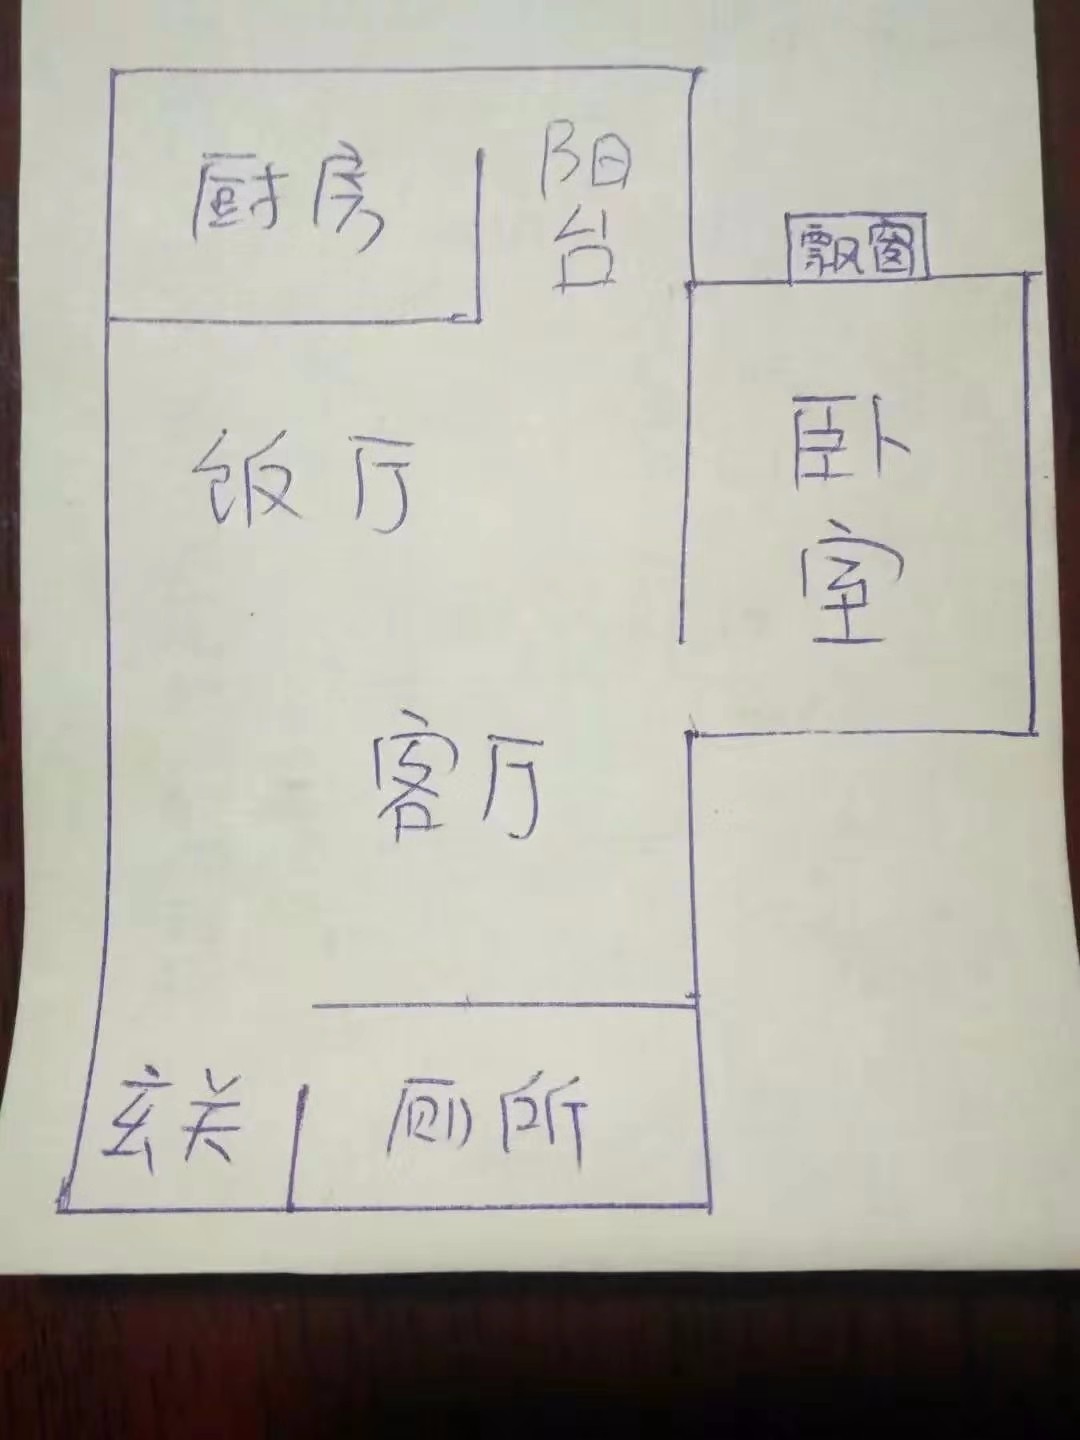 厨房
阳台
飘窗
饭厅
卧室
客厅
玄关
厕所